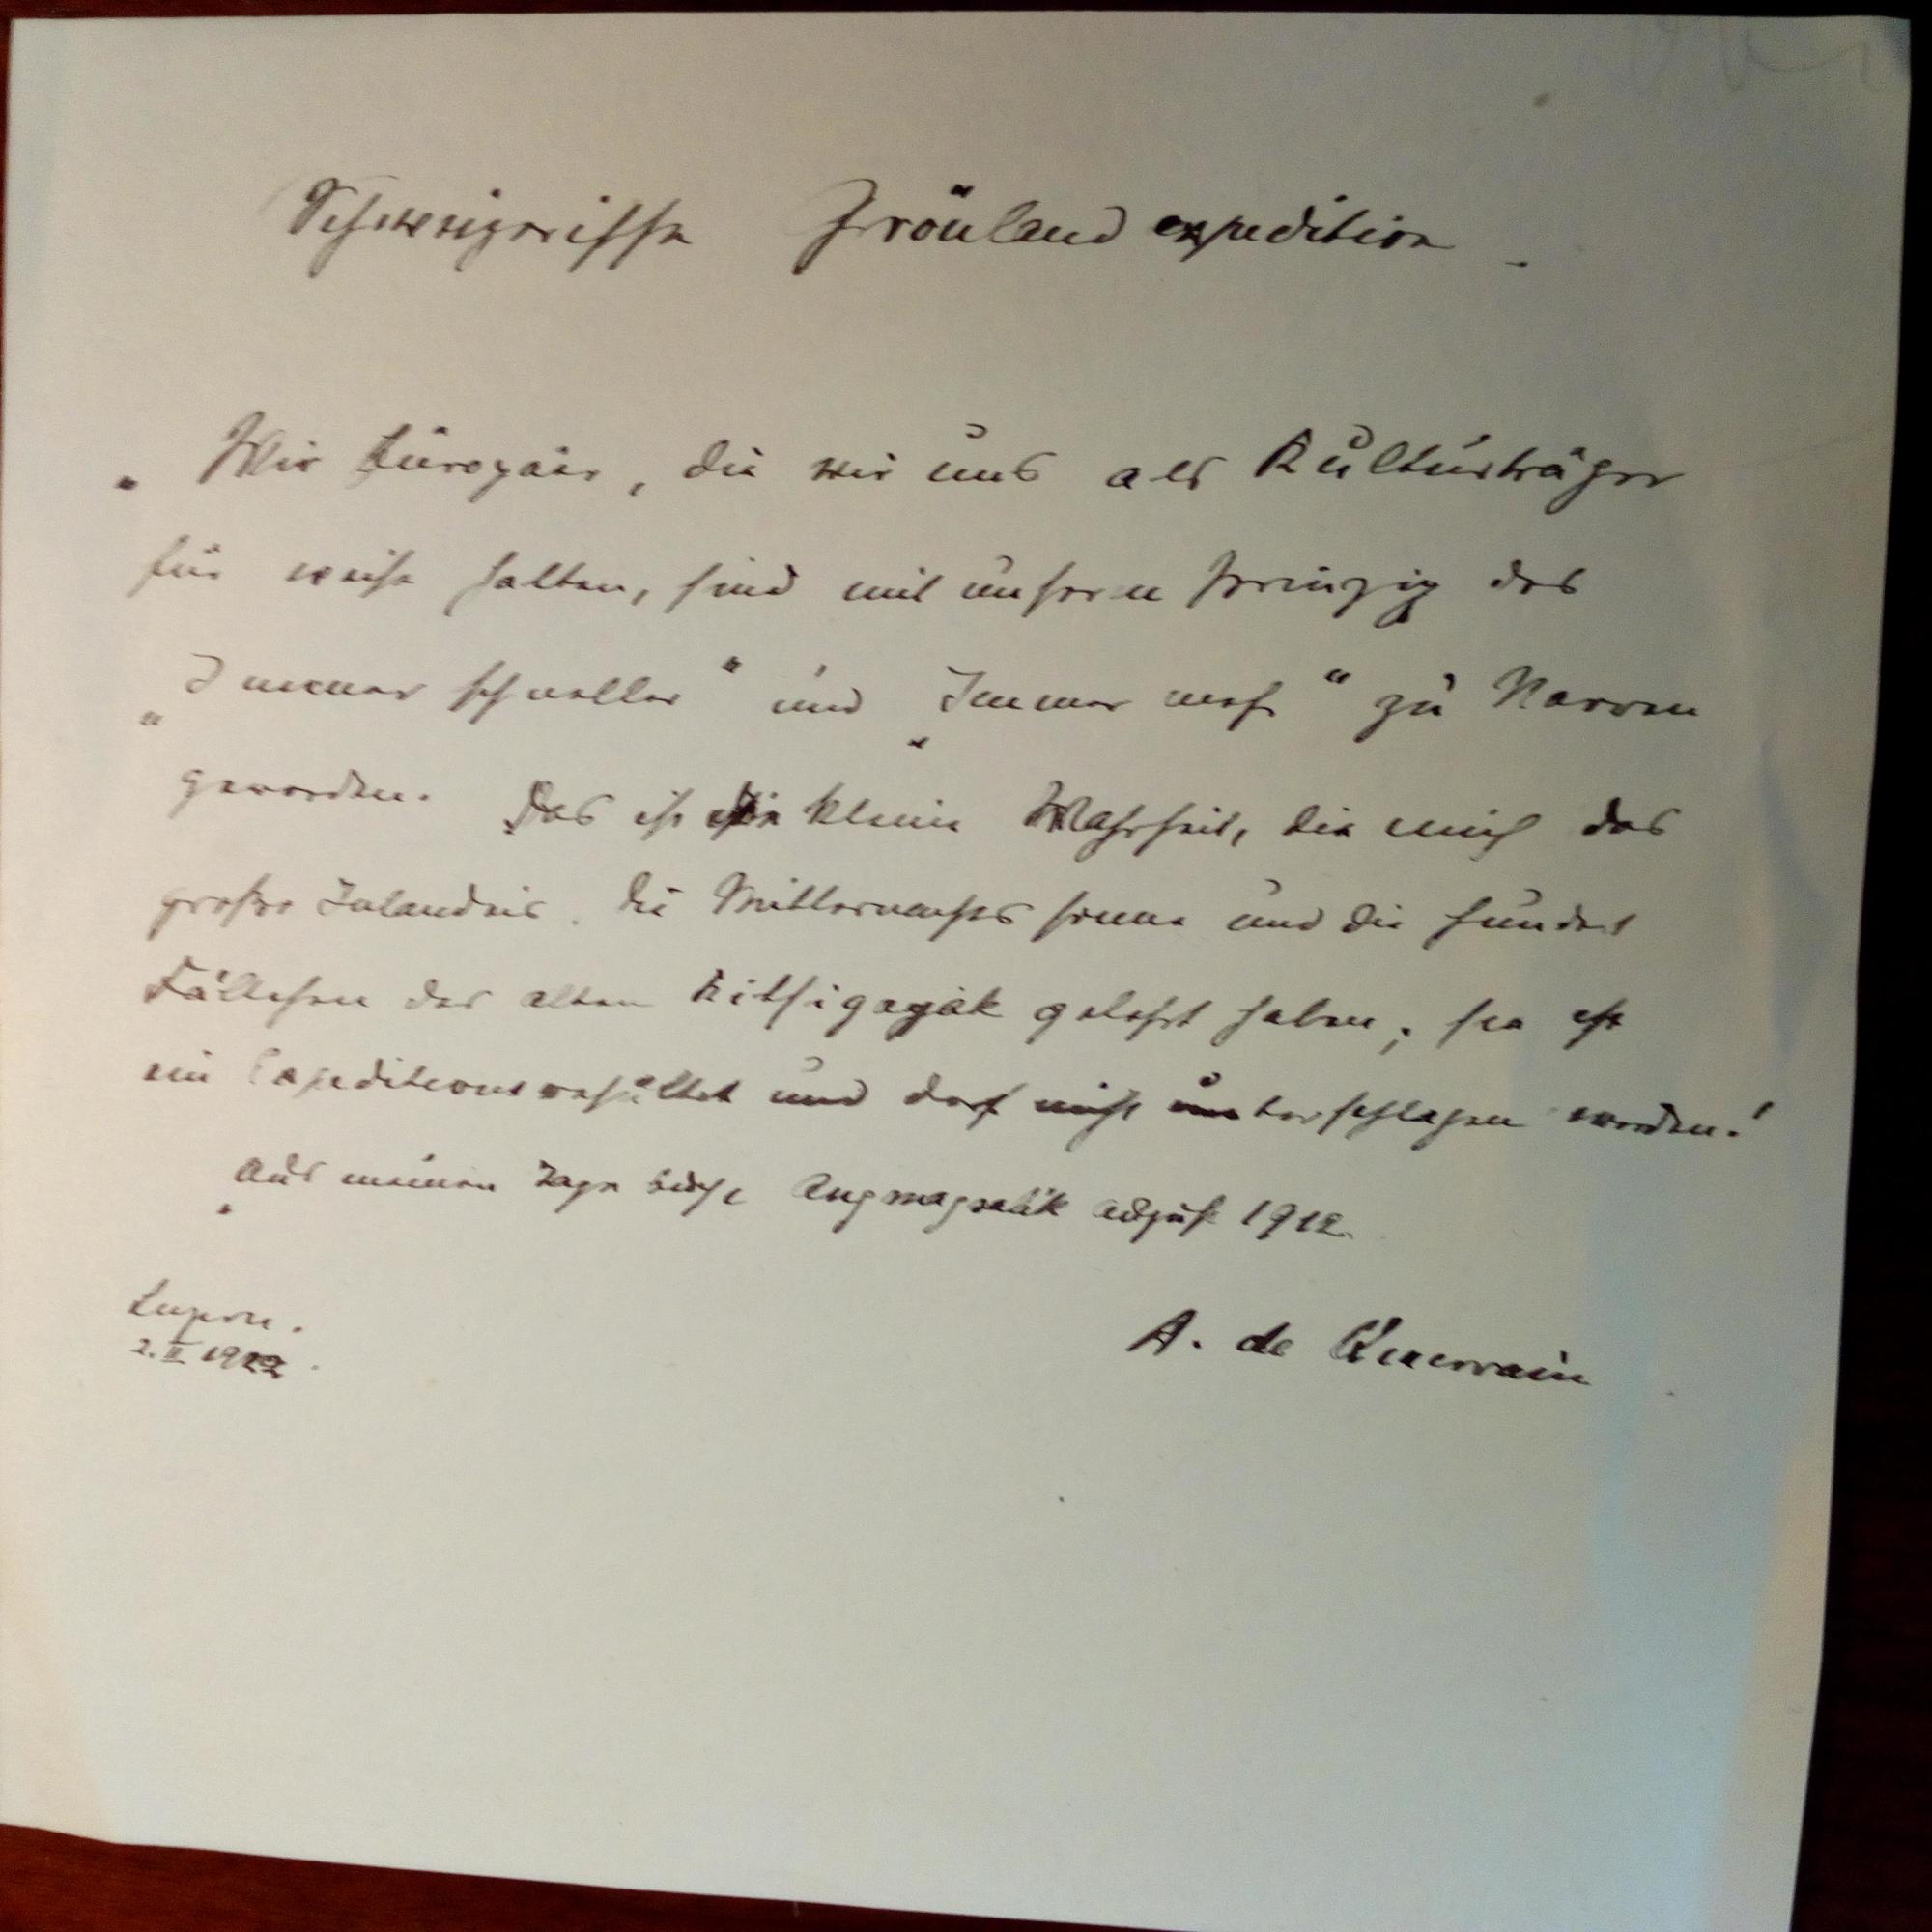 Schweizerische Grönlandexpedition.
„Wir Europäer, die wir uns als Kulturträger
für weise halten, sind mit unserm Prinzip des
„Immer schneller" und „Immer mehr" zu Narren
geworden. Das ist die kleine Wahrheit, die mich das
große Inlandeis, die Mitternachtssonne und die hundert
Fältchen der alten Kitsigajak gelehrt haben; sie ist
ein Expeditionsresultat und darf nicht unterschlagen werden!
Aus meinem Tagebuche Angmagsalik August 1912.
Luzern.
2. II 1922.
A. de Quervain